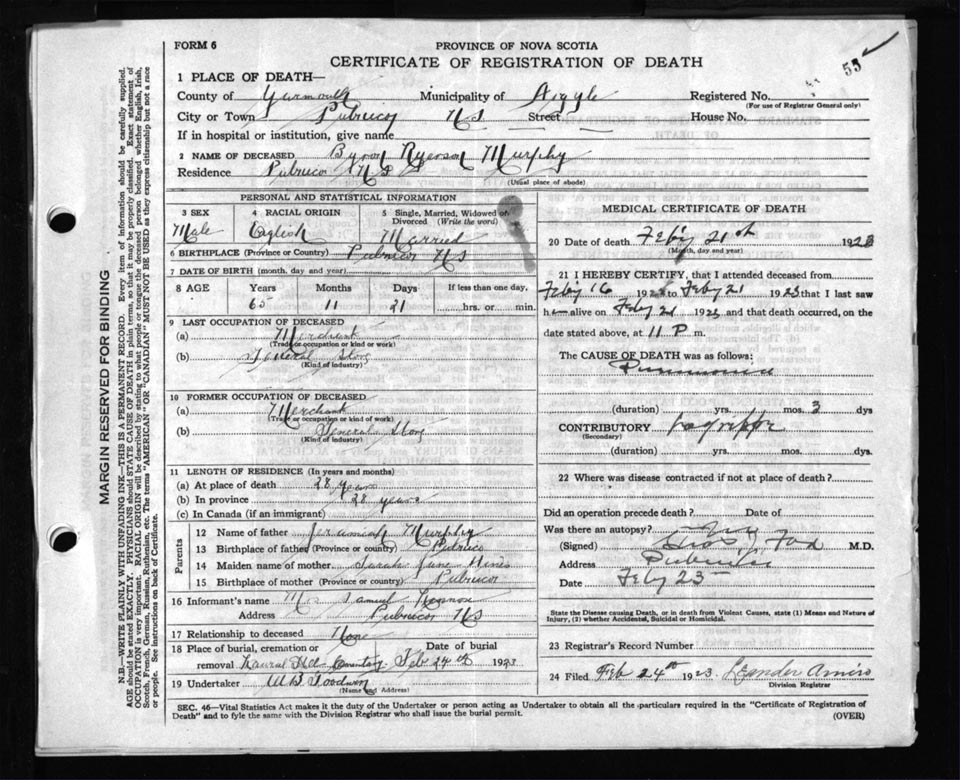 FORM 6
PROVINCE OF NOVA SCOTIA
CERTIFICATE OF REGISTRATION OF DEATH
55
1 PLACE OF DEATH—
County of Yarmouth Municipality of Argyle Registered No.
(For use of Registrar General only)
City or Town Pubnico NS Street House No.
If in hospital or institution, give name
2 NAME OF DECEASED Byron Ryerson Murphy
Residence Pubnico NS
(Usual place of abode)
PERSONAL AND STATISTICAL INFORMATION
3 SEX
Male
4 RACIAL ORIGIN
English
5 Single, Married, Widowed or Divorced (Write the word)
Married
6 BIRTHPLACE (Province or Country) Pubnico NS
7 DATE OF BIRTH (month, day and year)
8 AGE Years Months Days If less than one day,
65 11 21 hrs. or min.
9 LAST OCCUPATION OF DECEASED
(a) Merchant
(Trade or occupation or kind of work)
(b) General Store
(Kind of industry)
10 FORMER OCCUPATION OF DECEASED
(a) Merchant
(Trade or occupation or kind of work)
(b) General Store
(Kind of industry)
11 LENGTH OF RESIDENCE (In years and months)
(a) At place of death 28 years
(b) In province 28 years
(c) In Canada (if an immigrant)
Parents
12 Name of father Jeremiah Murphy
13 Birthplace of father (Province or country) Pubnico
14 Maiden name of mother Sarah Jane
15 Birthplace of mother (Province or country) Pubnico
16 Informant's name Mrs Samuel
Address Pubnico NS
17 Relationship to deceased None
18 Place of burial, cremation or Date of burial
removal Cemetery Feb 24th 1923
19 Undertaker W B Goodwin
(Name and Address)
MEDICAL CERTIFICATE OF DEATH
20 Date of death Feb'y 21st 1923
(Month, day and year)
21 I HEREBY CERTIFY, that I attended deceased from
Feb'y 16 1923 to Feb'y 21 1923 that I last saw
him alive on Feb'y 21 1923, and that death occurred, on the
date stated above, at 11 P m.
The CAUSE OF DEATH was as follows:
Pneumonia
(duration) yrs. mos. 3 dys
CONTRIBUTORY La grippe
(Secondary)
(duration) yrs. mos. dys.
22 Where was disease contracted if not at place of death?
Did an operation precede death? Date of
Was there an autopsy?
(Signed) M.D.
Address Pubnico
Date Feb'y 23
State the Disease causing Death, or in death from Violent Causes, state (1) Means and Nature of
Injury, (2) whether Accidental, Suicidal or Homicidal.
23 Registrar's Record Number
24 Filed Feb 24th 1923 Leander Amiro
Division Registrar
SEC. 46—Vital Statistics Act makes it the duty of the Undertaker or person acting as Undertaker to obtain all the particulars required in the "Certificate of Registration of
Death" and to fyle the same with the Division Registrar who shall issue the burial permit.
(OVER)
MARGIN RESERVED FOR BINDING
N.B.—WRITE PLAINLY WITH UNFADING INK—THIS IS A PERMANENT RECORD. Every item of information should be carefully supplied.
AGE should be stated EXACTLY. PHYSICIANS should STATE CAUSE OF DEATH in plain terms, so that it may be properly classified. Exact statement of
OCCUPATION is very important. RACIAL ORIGIN will be described by stating to what people or tongue the deceased person belonged whether English, Irish,
Scotch, French, German, Russian, Ruthenian, etc. The terms "AMERICAN" OR "CANADIAN" MUST NOT BE USED as they express citizenship but not a race
or people. See instructions on back of Certificate.